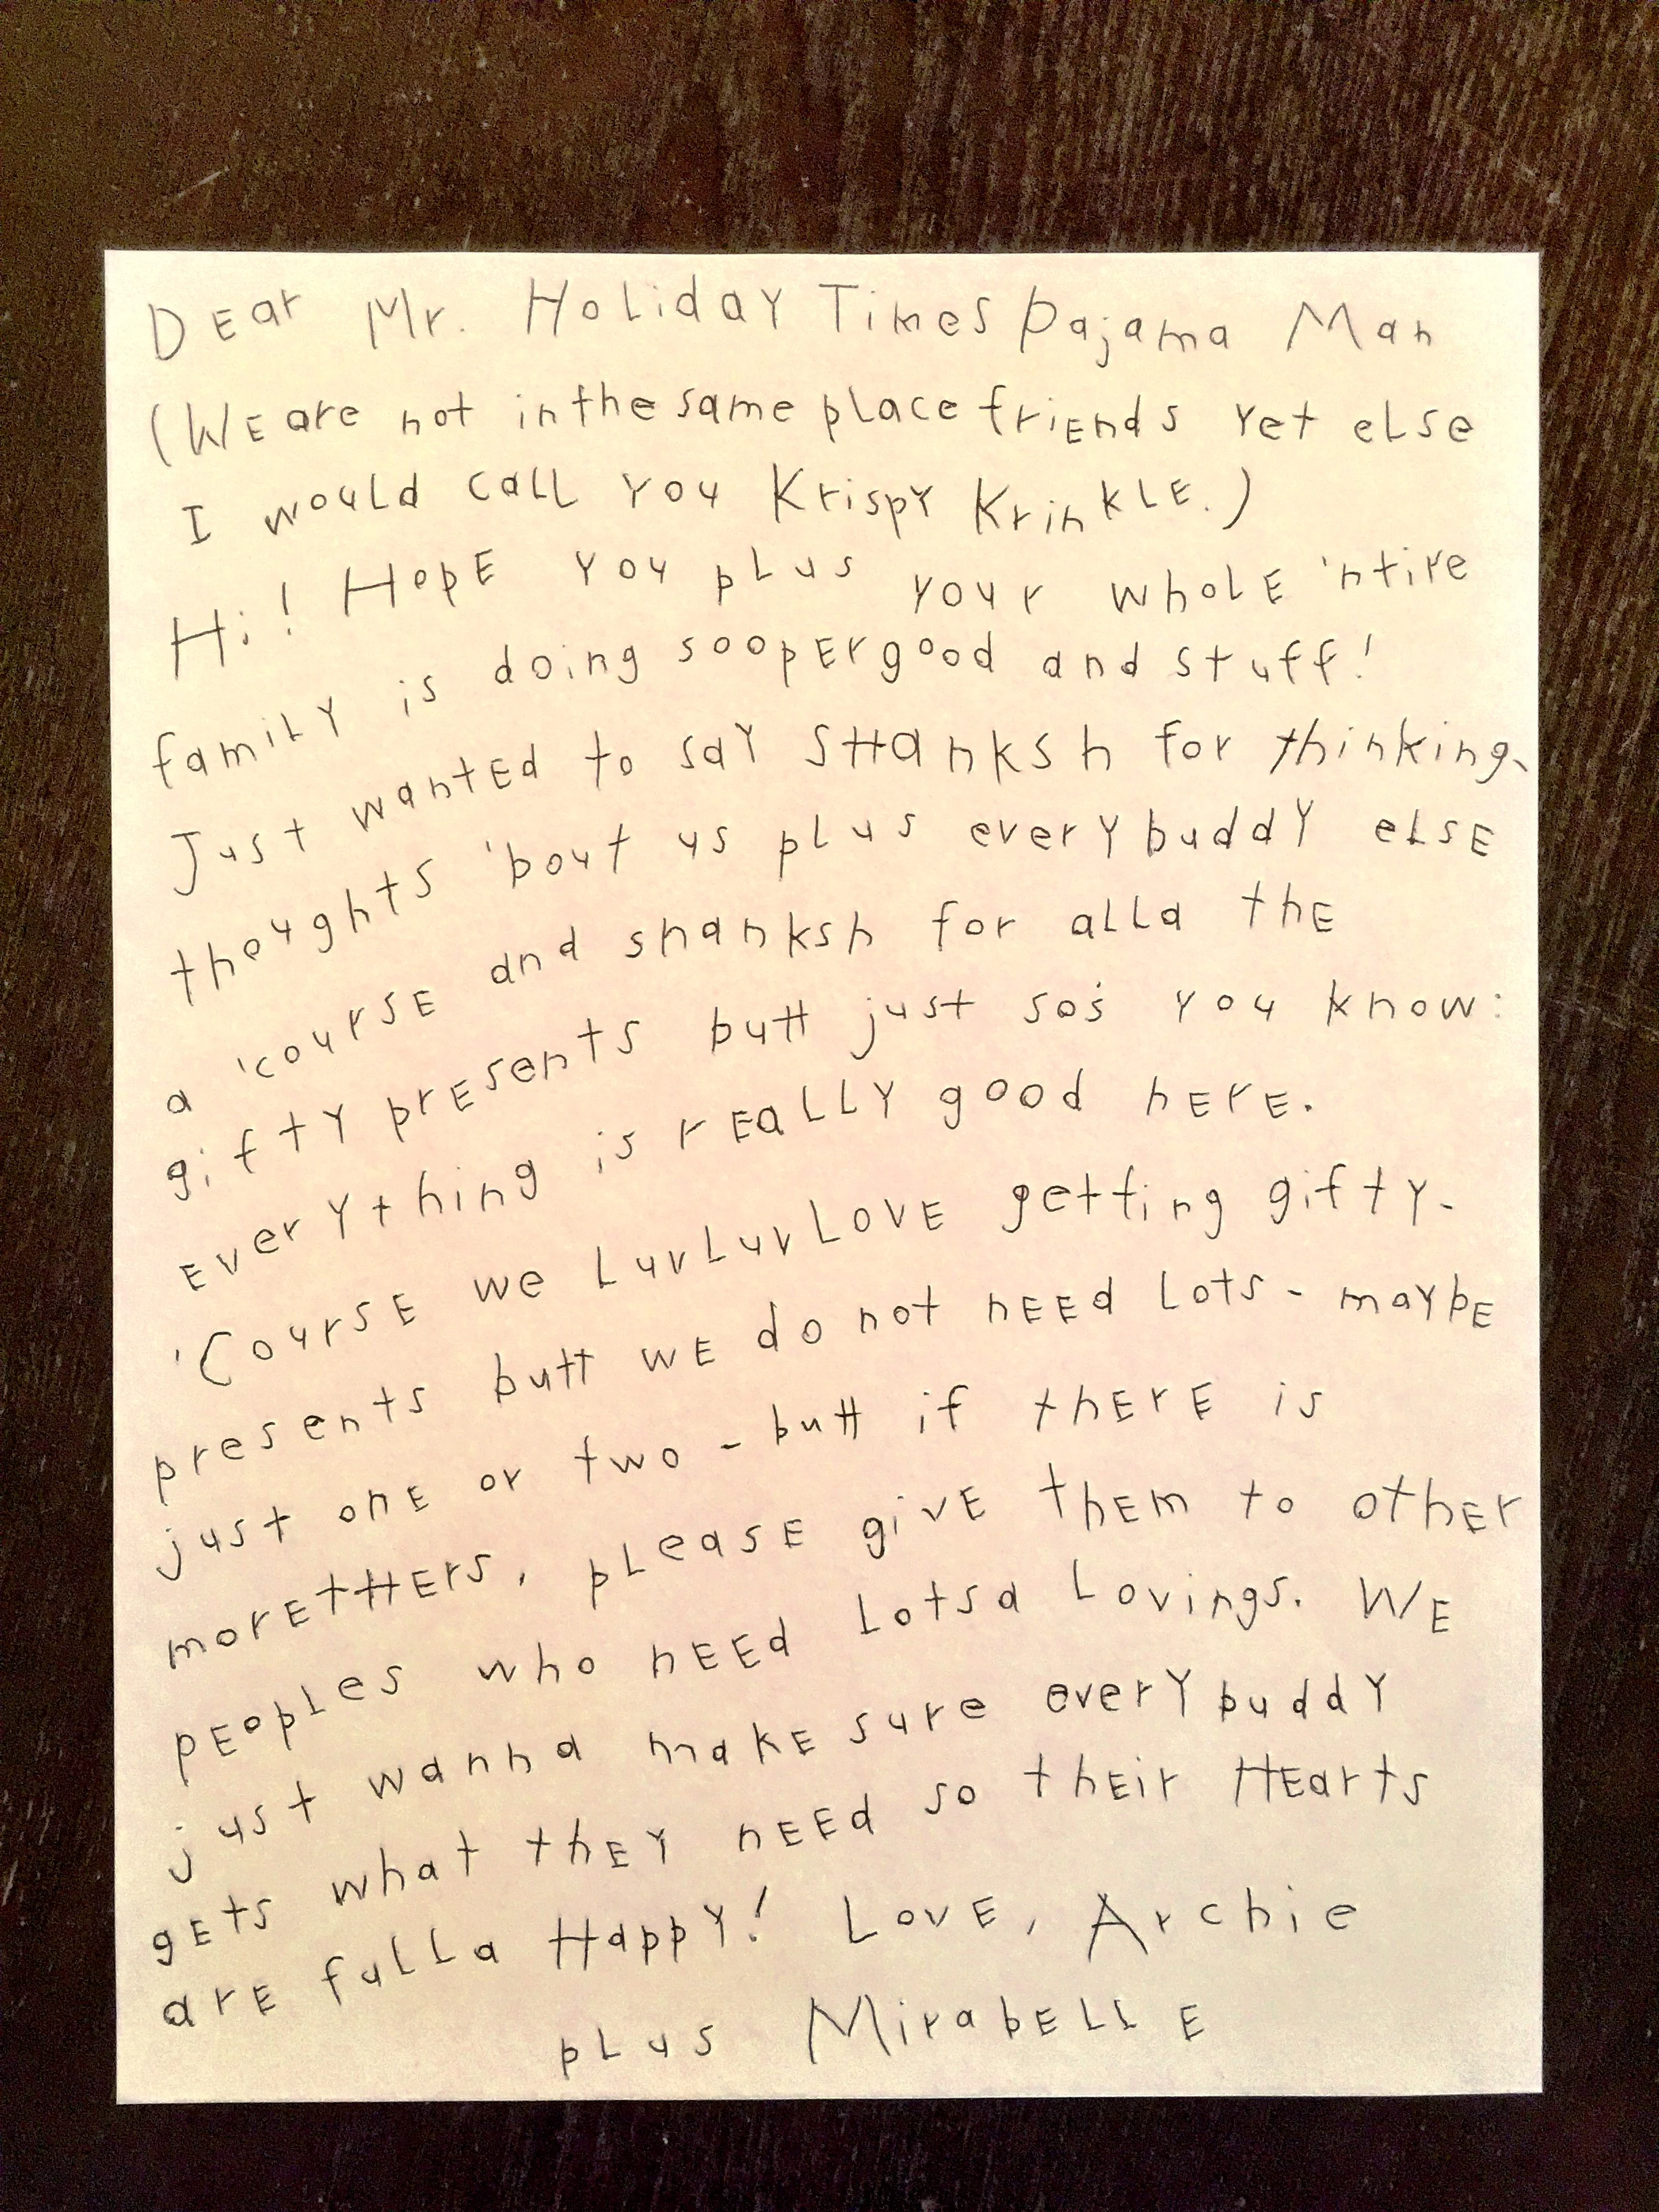 Dear Mr. Holiday Times Pajama Man
(We are not in the same place friends yet else
I would call you Krispy Krinkle.)
Hi! Hope you plus your whole 'ntire
family is doing soopergood and stuff!
Just wanted to say SHanksh for thinking-
thoughts 'bout us plus everybuddy else
a 'course and shanksh for alla the
gifty presents butt just so's you know:
everything is really good here.
'Course we LuvLuvLOVE getting gifty-
presents butt we do not need lots - maybe
just one or two - butt if there is
moretHers, please give them to other
peoples who need lotsa lovings. We
just wanna make sure everybuddy
gets what they need so their Hearts
are fulla Happy! Love, Archie
plus Mirabelle